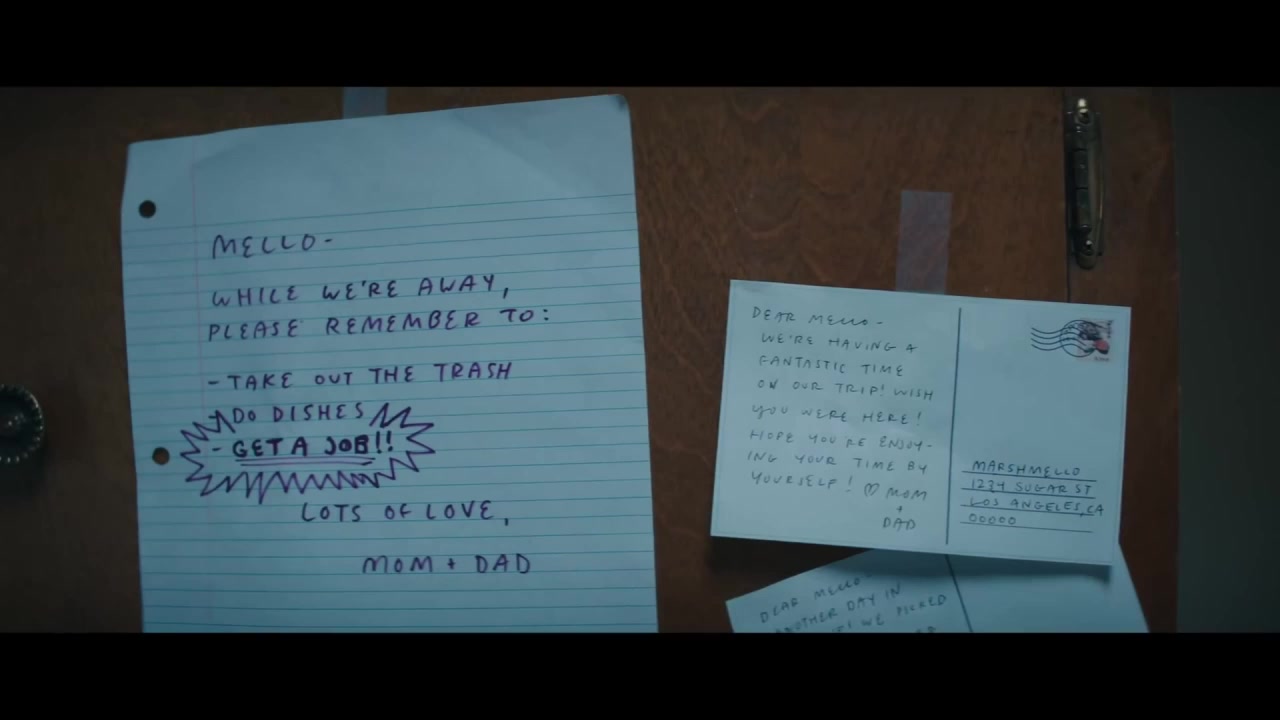 MELLO-
WHILE WE'RE AWAY,
PLEASE REMEMBER TO:
- TAKE OUT THE TRASH
DO DISHES
- GET A JOB!!
LOTS OF LOVE,
MOM + DAD
DEAR MELLO-
WE'RE HAVING A
FANTASTIC TIME
ON OUR TRIP! WISH
YOU WERE HERE!
HOPE YOU'RE ENJOY-
ING YOUR TIME BY
YOURSELF! ♡ MOM
+
DAD
MARSHMELLO
1234 SUGAR ST
LOS ANGELES, CA
00000
DEAR MELLO-
ANOTHER DAY IN
WE PICKED